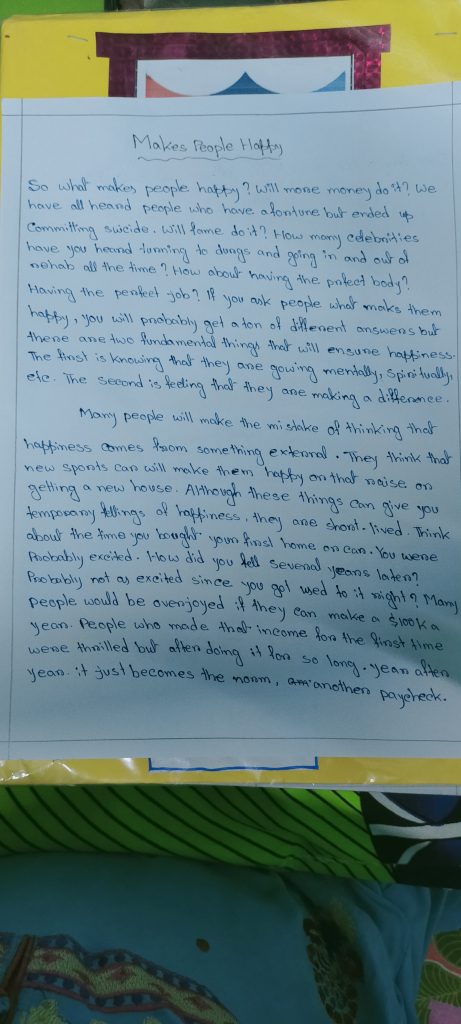 Makes People Happy
So what makes people happy? Will more money do it? We
have all heard people who have a fortune but ended up
Committing suicide. Will fame do it? How many celebrities
have you heard turning to drugs and going in and out of
rehab all the time? How about having the prfect body?
Having the perfect job? If you ask people what maks them
happy, you will probably get a ton of different answers but
there are two fundamental things that will ensure happiness.
The first is knowing that they are gowing mentally, Spiritually,
etc. The second is feeling that they are making a difference.
Many people will make the mistake of thinking that
happiness comes from something external. They think that
new sports car will make them happy or that raise or
getting a new house. Although these things can give you
temporary fellings of happiness, they are short-lived. Think
about the time you bought your first home or car. You were
Probably excited. How did you fell several years later?
Probibly not as excited since you got used to it right? Many
people would be overjoyed if they can make a $100k a
year. People who made that income for the first time
were thrilled but after doing it for so long. year after
year. it just becomes the norm, another paycheck.